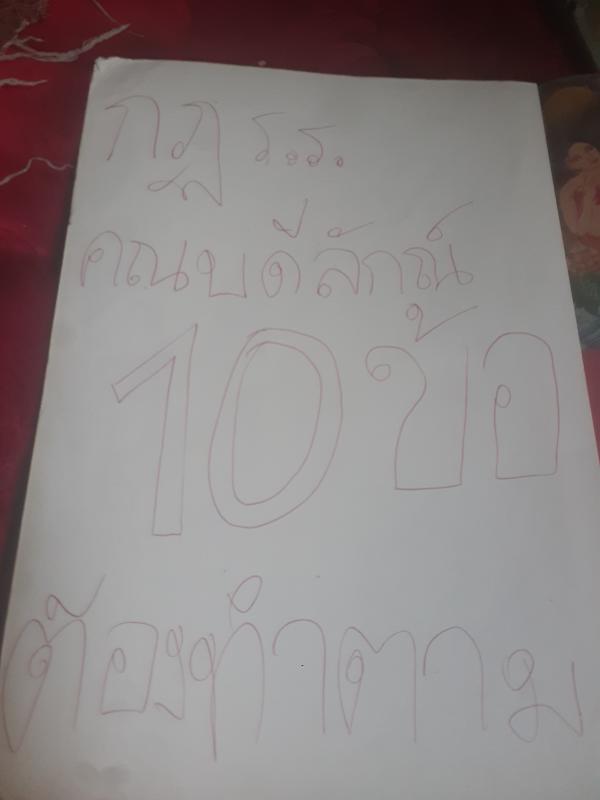 กฎ ร.ร.
คณบดีลักณ์
10 ข้อ
ต้องทำตาม